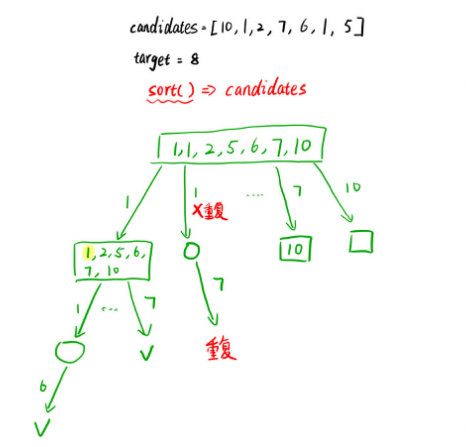 candidates = [10, 1, 2, 7, 6, 1, 5]
target = 8
sort() => candidates
1, 1, 2, 5, 6, 7, 10
1
1
....
7
10
X重复
1, 2, 5, 6,
7, 10
10
1
...
7
7
重复
6